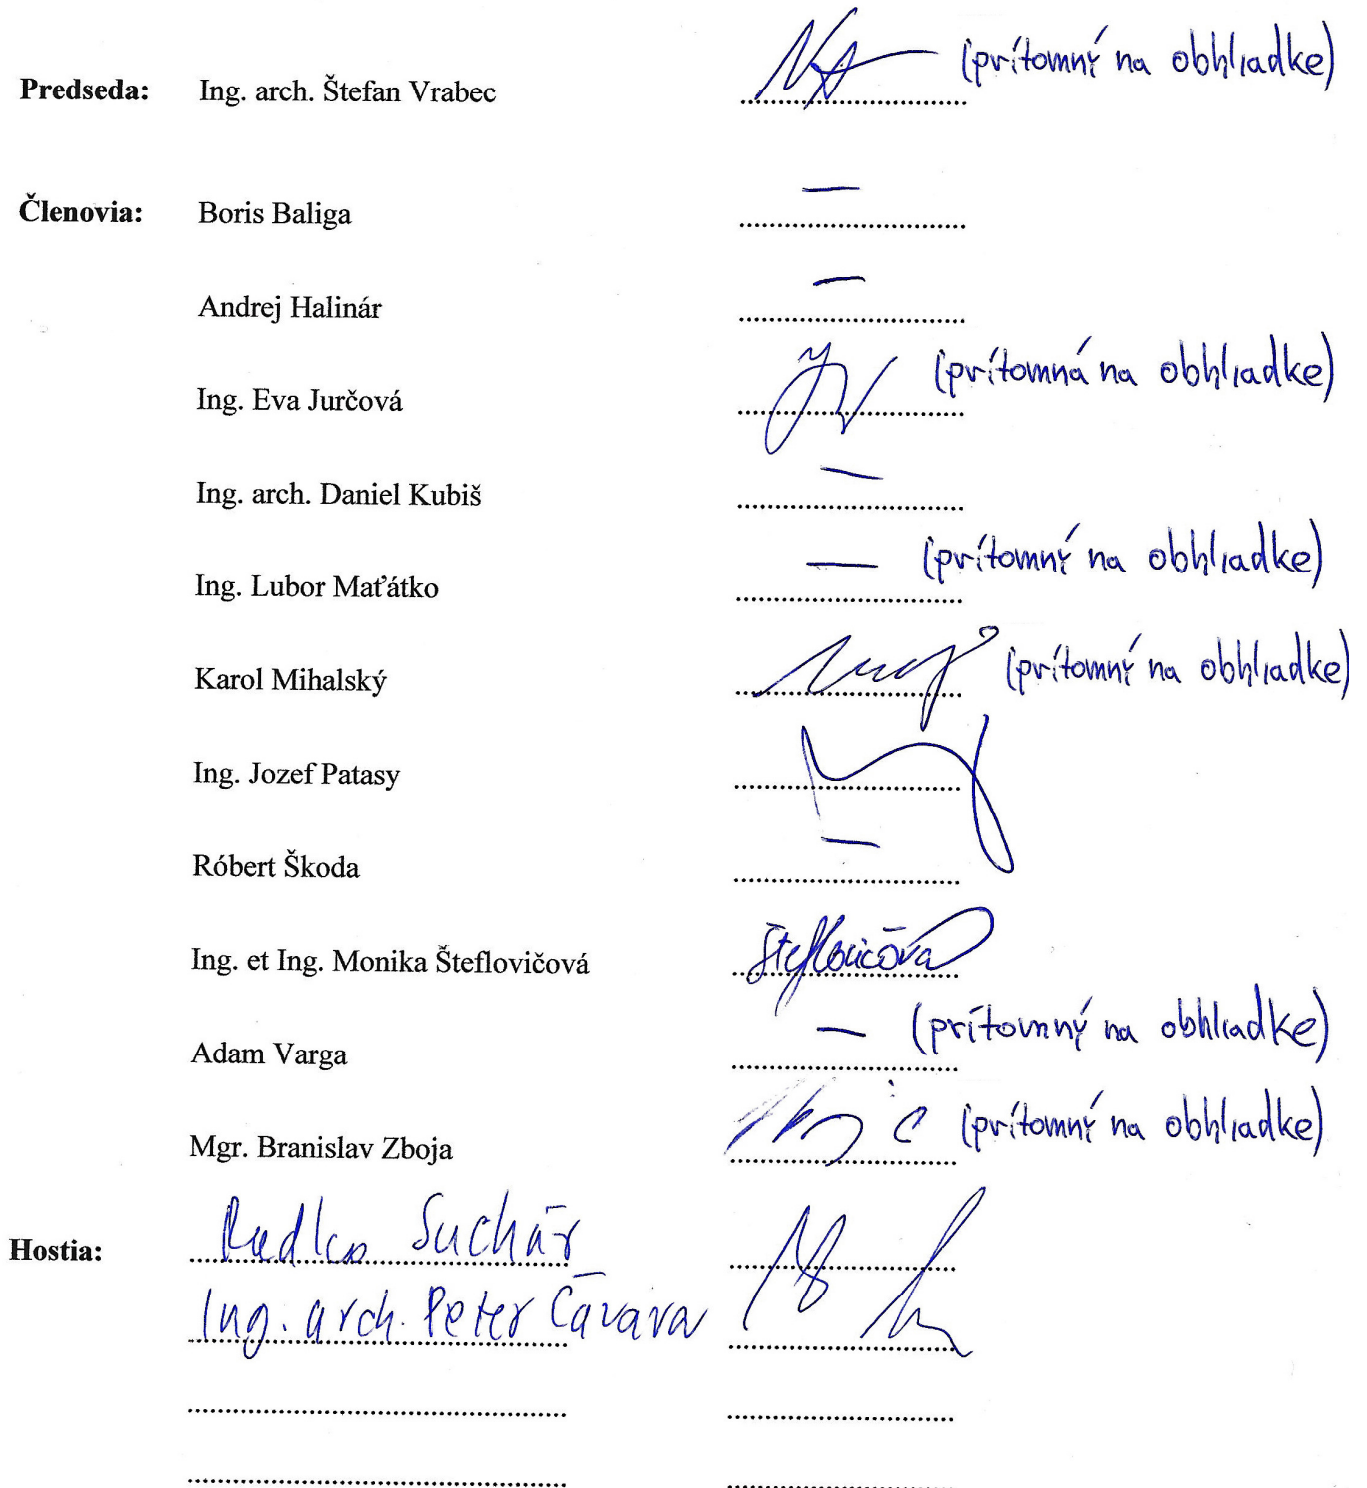 Predseda: Ing. arch. Štefan Vrabec (prítomný na obhliadke)
Členovia: Boris Baliga —
Andrej Halinár —
Ing. Eva Jurčová (prítomná na obhliadke)
Ing. arch. Daniel Kubiš —
Ing. Lubor Maťátko — (prítomný na obhliadke)
Karol Mihalský (prítomný na obhliadke)
Ing. Jozef Patasy
Róbert Škoda —
Ing. et Ing. Monika Šteflovičová Šteflovičová
Adam Varga — (prítomný na obhliadke)
Mgr. Branislav Zboja (prítomný na obhliadke)
Hostia: Radko Suchár
Ing. arch. Peter Čavara